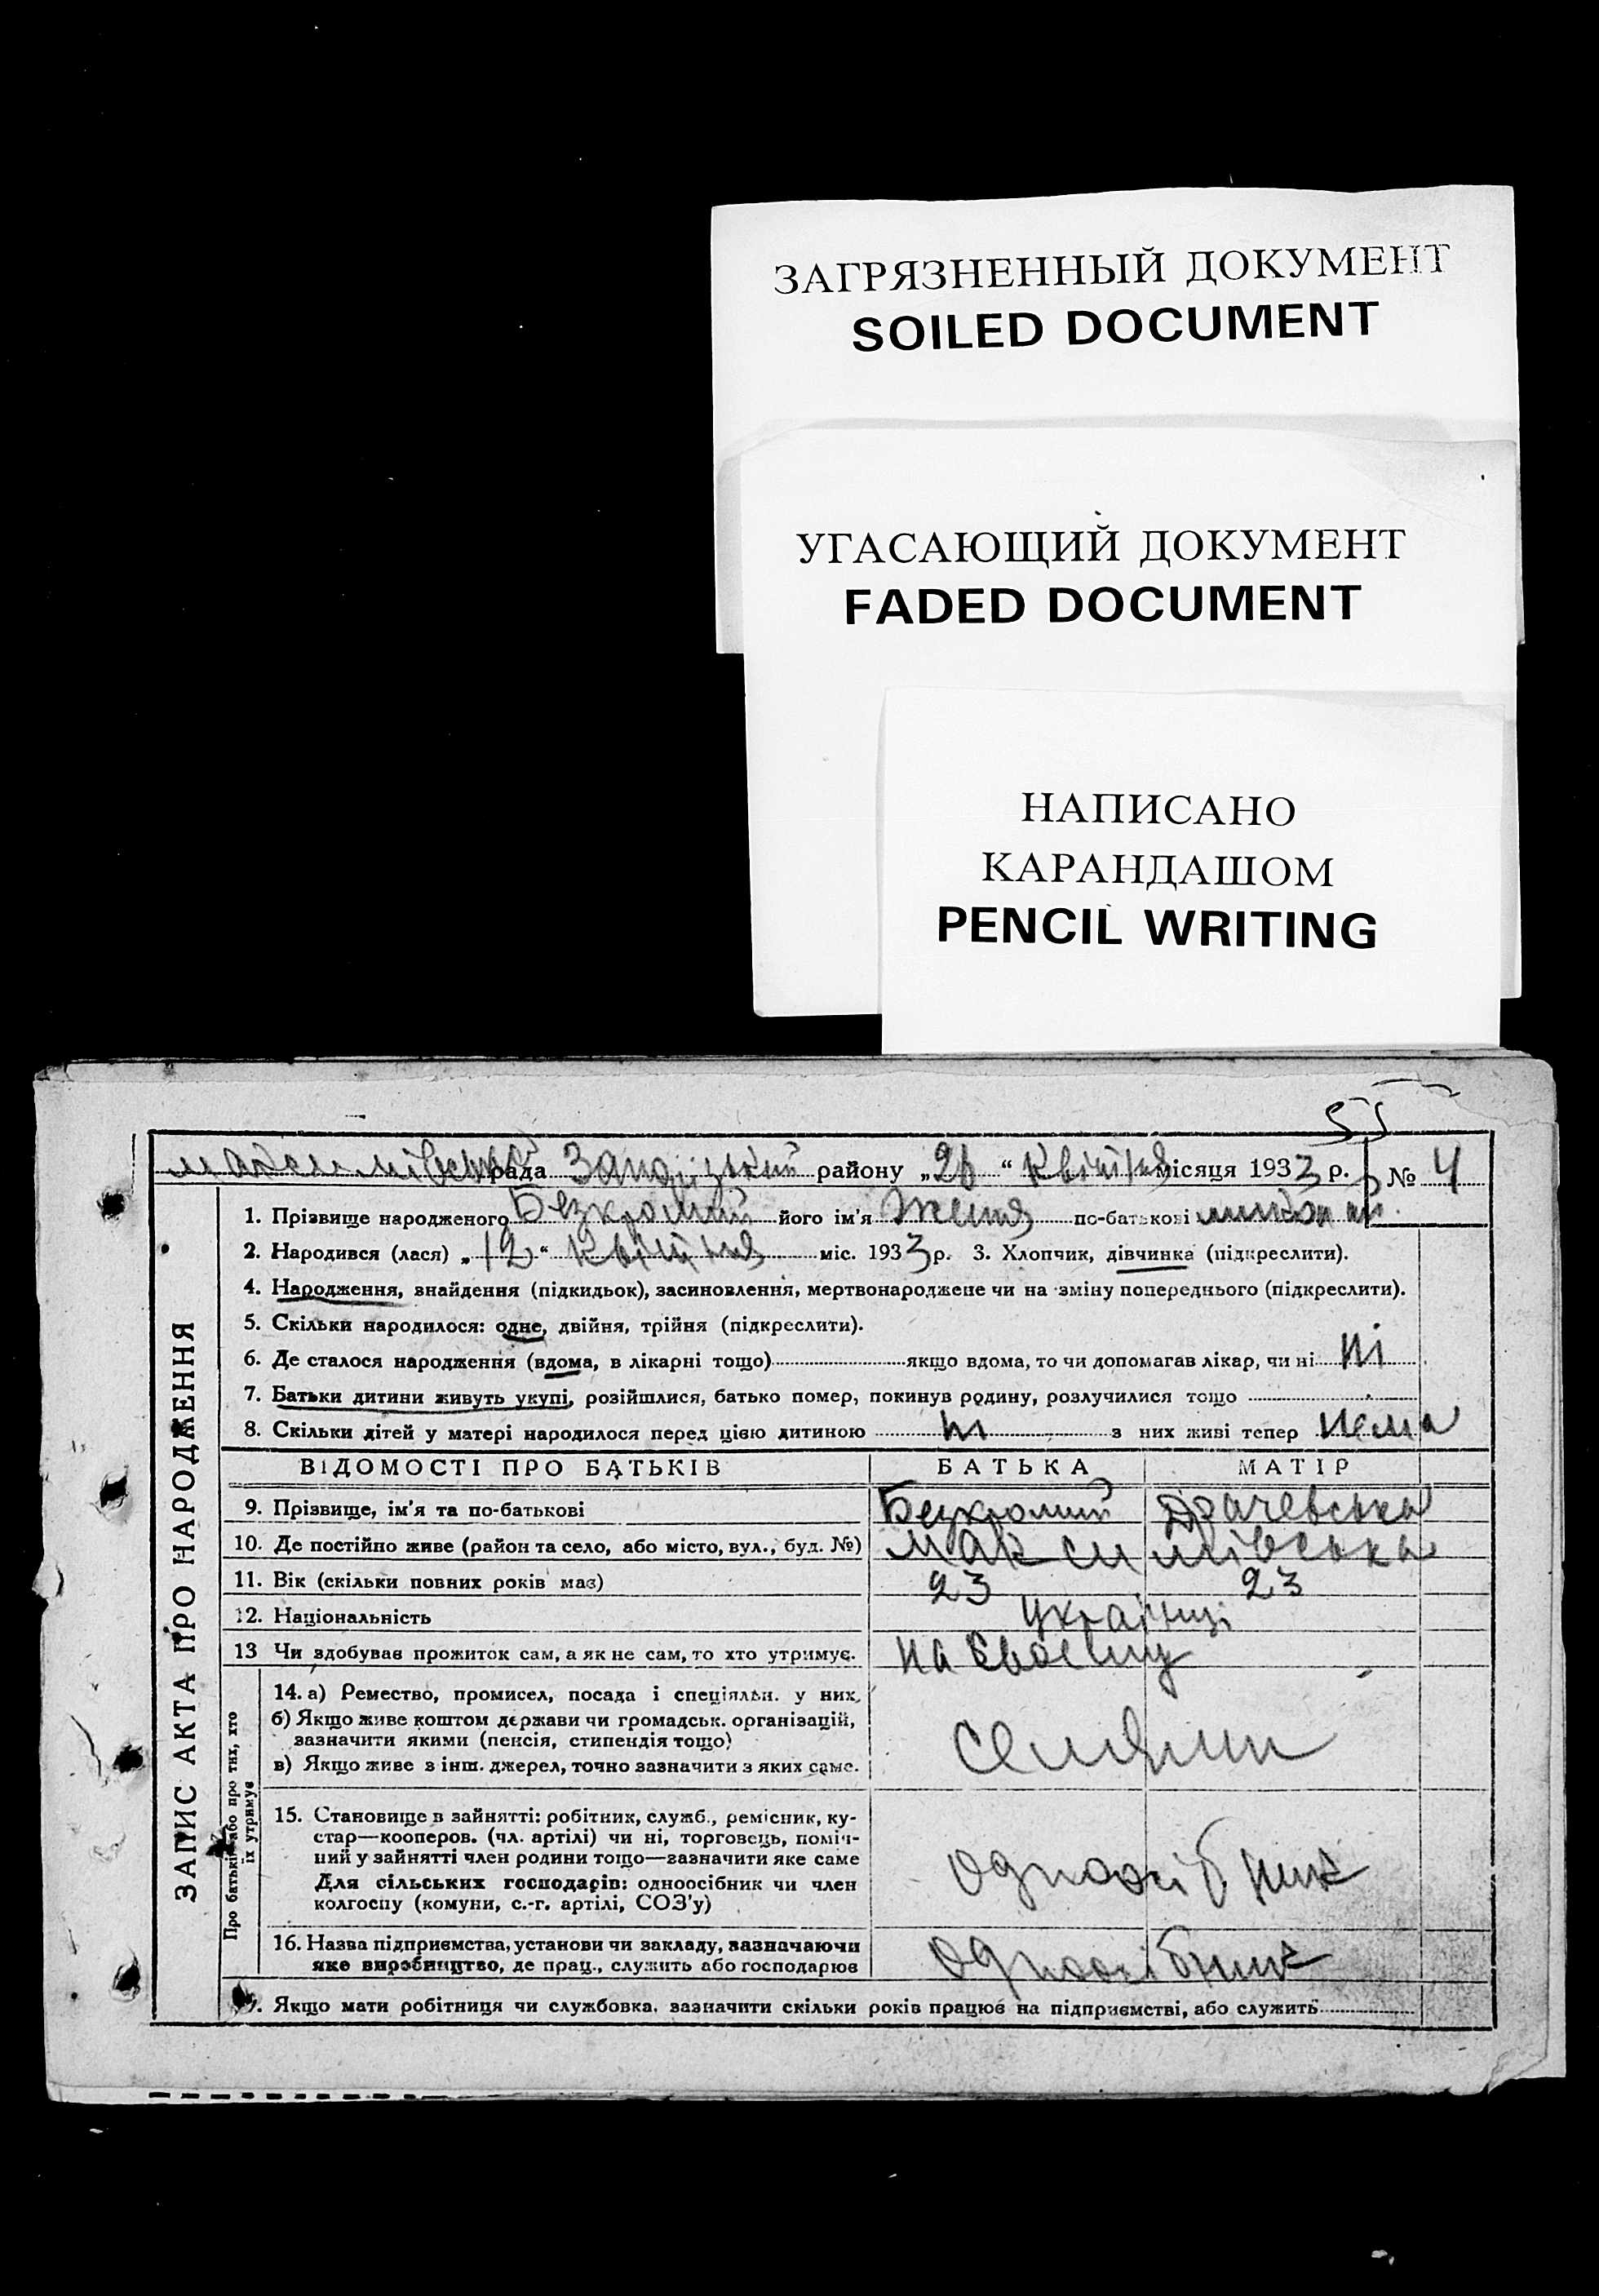 ЗАГРЯЗНЕННЫЙ ДОКУМЕНТ
SOILED DOCUMENT
УГАСАЮЩИЙ ДОКУМЕНТ
FADED DOCUMENT
НАПИСАНО
КАРАНДАШОМ
PENCIL WRITING
55
рада района „ “ Квітня місяця 1933 р. № 4
1. Прізвище народженого Безкромий його ім'я Женя по-батькові
2. Народився (лася) „12“ квітня міс. 1933 р. 3. Хлопчик, дівчинка (підкреслити).
4. Народження, знайдення (підкидьок), засиновлення, мертвонароджене чи на зміну попереднього (підкреслити).
5. Скільки народилося: одне, двійня, трійня (підкреслити).
6. Де сталося народження (вдома, в лікарні тощо) якщо вдома, то чи допомагав лікар, чи ні ні
7. Батьки дитини живуть укупі, розійшлися, батько помер, покинув родину, розлучилися тощо
8. Скільки дітей у матері народилося перед цією дитиною ні з них живі тепер нема
ЗАПИС АКТА ПРО НАРОДЖЕННЯ
ВІДОМОСТІ ПРО БАТЬКІВ БАТЬКА МАТІР
9. Прізвище, ім'я та по-батькові Безкромий Драчевська
10. Де постійно живе (район та село, або місто, вул., буд. №) Максимівська
11. Вік (скільки повних років має) 23 23
12. Національність українці
13 Чи здобував прожиток сам, а як не сам, то хто утримує. на своєму
Про батьків або про тих, хто
їх утримує
14. а) Ремество, промисел, посада і спеціяльн. у них,
б) Якщо живе коштом держави чи громадськ. організацій,
зазначити якими (пенсія, стипендія тощо)
в) Якщо живе з інш. джерел, точно зазначити з яких саме.
селянин
15. Становище в зайнятті: робітник, служб., ремісник, ку-
стар—кооперов. (чл. артілі) чи ні, торговець, поміч-
ний у зайнятті член родини тощо—зазначити яке саме
Для сільських господарів: одноосібник чи член
колгоспу (комуни, с.-г. артілі, СОЗ'у)
одноосібник
16. Назва підприємства, установи чи закладу, зазначаючи
яке виробництво, де прац., служить або господарює
одноосібник
Якщо мати робітниця чи службовка, зазначити скільки років працює на підприємстві, або служить